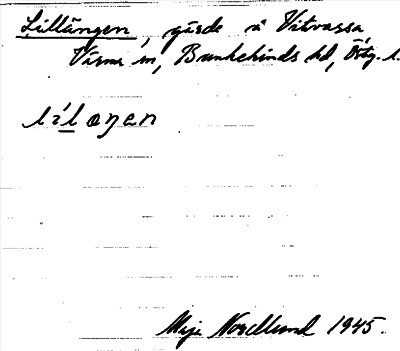 Lillängen, gärde å Vitvassa,
Värna sn, Bankekinds hd, Östg. l.
lilaŋen
Maja Norellund 1945.